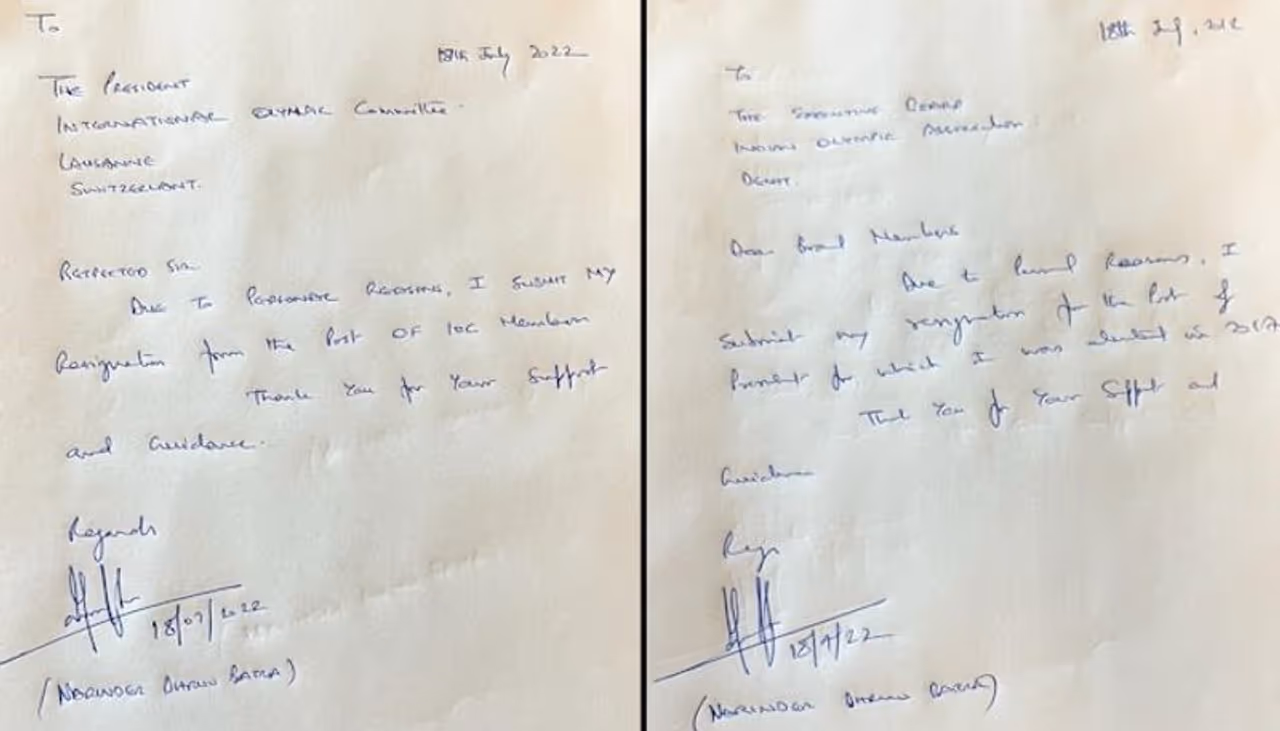 To
18th July 2022
The President
International Olympic Committee.
Lausanne
Switzerland.
Respected Sir
Due to Personal Reasons, I submit my
Resignation from the Post of IOC Member
Thank You for Your Support
and Guidance.
Regards
18/07/2022
(Narinder Dhruv Batra)
18th July, 2022
To
The Executive Board
Indian Olympic Association
Delhi.
Dear Board Members
Due to Personal Reasons, I
submit my resignation for the Post of
President for which I was elected in 2017
Thank You for Your Support and
Guidance
18/7/22
(Narinder Dhruv Batra)